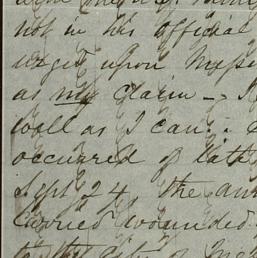 not in his official
urged upon
as my claim - I
well as I can.
occurred of late
Sept 24 the
carried wounded
to the city of